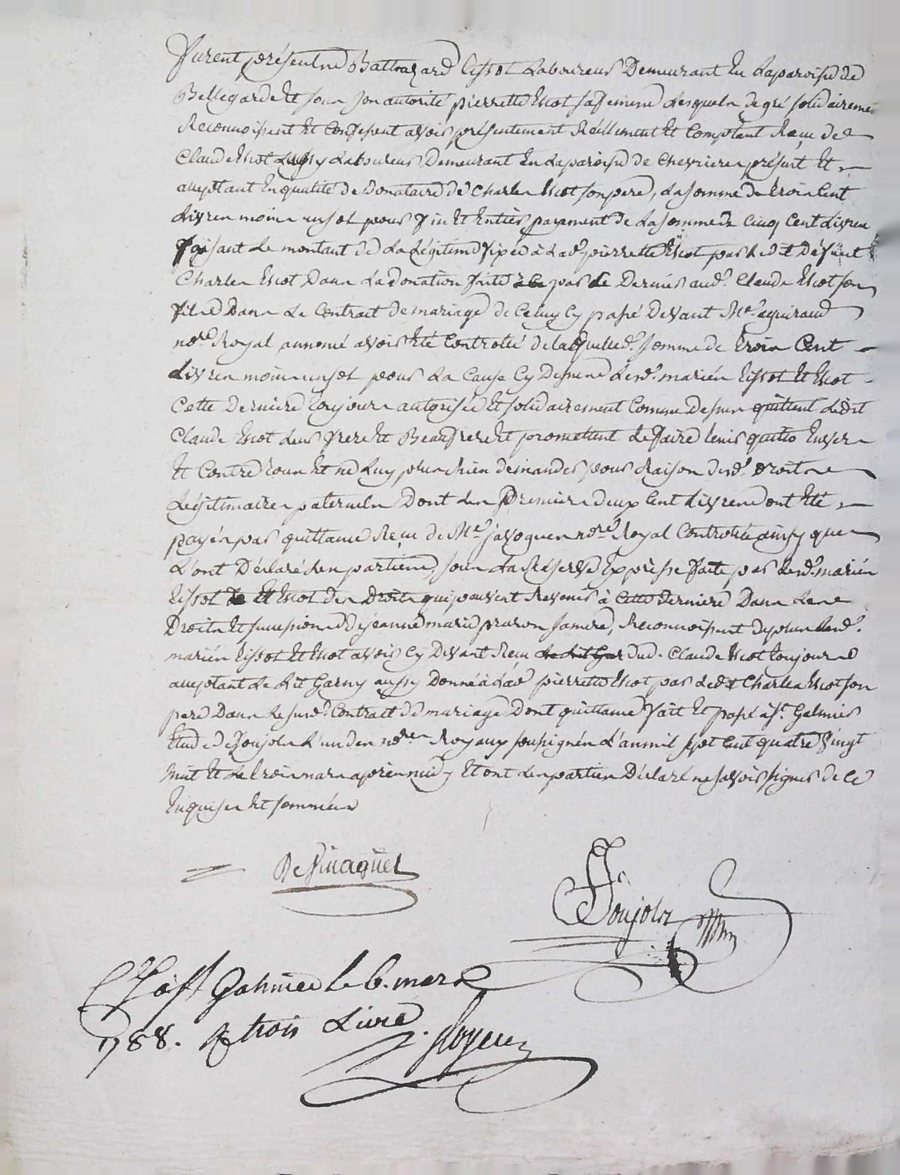 Furent présent Baltazard Tissot Laboureur Demeurant En La paroisse de
Bellegarde Et sous son autorité pierrette Escot sa femme Lesquels de gré solidaireme
Reconnoissent Et Confessent avoir présentement Réellement Et Comptant Reçu de
Claude Escot Laboureur demeurant En La paroisse de Chevrieres présent Et
acceptant En qualité de Donataire de Charles Escot son père, La somme de Trois Cent
Livres moins un sol pour fin Et Entier payement de La somme de Cinq Cent Livres
faisant Le montant de La Légitime fixée à Lad. pierrette Escot par Led. Défunt
Charles Escot Dans La donation faite par Le Dernier aud. Claude Escot son
fils Dans Le Contrat de mariage de Celuy Cy passé Devant Me.
nore. Royal avoir été Controllé de Laquelle. somme de Trois Cent
Livres moins un sol pour La Cause Cy Dessus Lesd. mariés Tissot Et Escot
Cette Derniere Toujours autorisée Et solidairement Comme Dessus quittent Ledit
Claude Escot Leur frere Et Beaufrere Et promettent Le faire tenir quitte Envers
Et Contre Tous Et ne Luy plus Rien demander pour Raison desd. Droits
Légitimaires paternels Dont Les Premiers deux Cent Livres ont Eté
payés par quittance Reçue de Me. Javoguer nore. Royal Controllée ainsy que
L'ont Déclaré Les parties, sous La Réserve Expresse faite par Lesd. mariés
Tissot Et Escot Des Droits qui peuvent Revenir à Cette Derniere Dans Les
Droits Et succession de jeanne marie sa mere, Reconnoissent de plus Lesd.
mariés Tissot Et Escot avoir Cy Devant Reçu dud. Claude Escot Toujours
acceptant Le Lit Garny aussy Donné à Lad. pierrette Escot par Led. Charles Escot son
pere Dans Le susd. Contrat de mariage Dont quittance fait Et passé à St. Galmier
Etude de Poujols L'un des nores. Royaux soussignés L'an mil sept Cent quatre Vingt
huit Et Le Trois mars après midy Et ont Les parties Déclaré ne savoir signer de Ce
Enquises Et sommées
Poujols
Clé à St Galmier le 6. mars
1788. R trois Livres